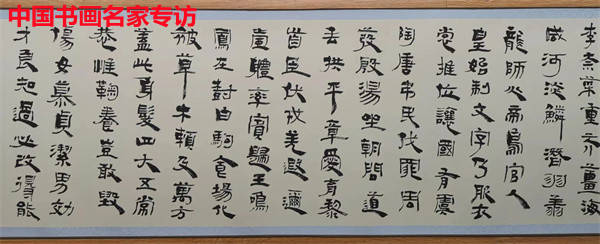 中国书画名家专访
李柰菜重芥薑海
咸河淡鱗潛羽翔
龍師火帝鳥官人
皇始制文字乃服衣
裳推位讓國有虞
陶唐弔民伐罪周
發殷湯坐朝問道
垂拱平章愛育黎
首臣伏戎羌遐邇
壹體率賓歸王鳴
鳳在樹白駒食場化
被草木賴及萬方
蓋此身髮四大五常
恭惟鞠養豈敢毀
傷女慕貞潔男效
才良知過必改得能